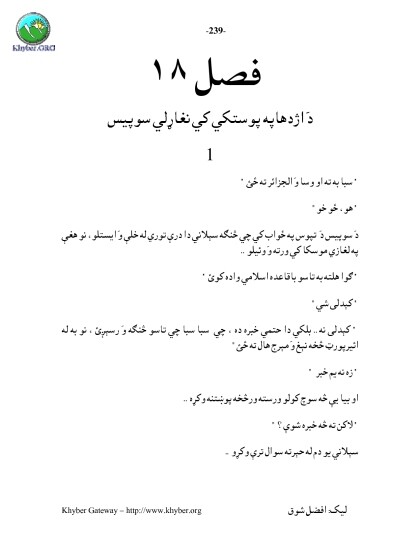 Khyber.ORG
-239-
فصل ۱۸
دَ اژدها په پوستکي کي نغاړلي سوپيس
1
" سبا به ته او وسا وَ الجزائر ته ځئ "
" هو ، ځو خو "
دَ سوپيس دَ تپوس په ځواب کي چي څنګه سبلاني دا درې توري له خلې وَ ايستلو ، نو هغې
په لغاړي موسکا کي ورته وَ وئيلو ..
" ګوا هلته به تاسو باقاعده اسلامي واده کوئ "
" کېدلی شي "
" کېدلی نه .. بلکي دا حتمي خبره ده ، چي سبا سبا چي تاسو څنګه وَ رسېږئ ، نو به له
ائيرپورټ څخه نېغ وَ مېرج هال ته ځئ "
" زه نه يم خبر "
او بيا يې څه سوچ کولو ورسته ورڅخه پوښتنه وکړه ..
" لاکن ته څه خبره شوې ؟ "
سبلاني يو دم له حېرته سوال ترې وکړو ..
Khyber Gateway – http://www.khyber.org
ليک: افضل شوق